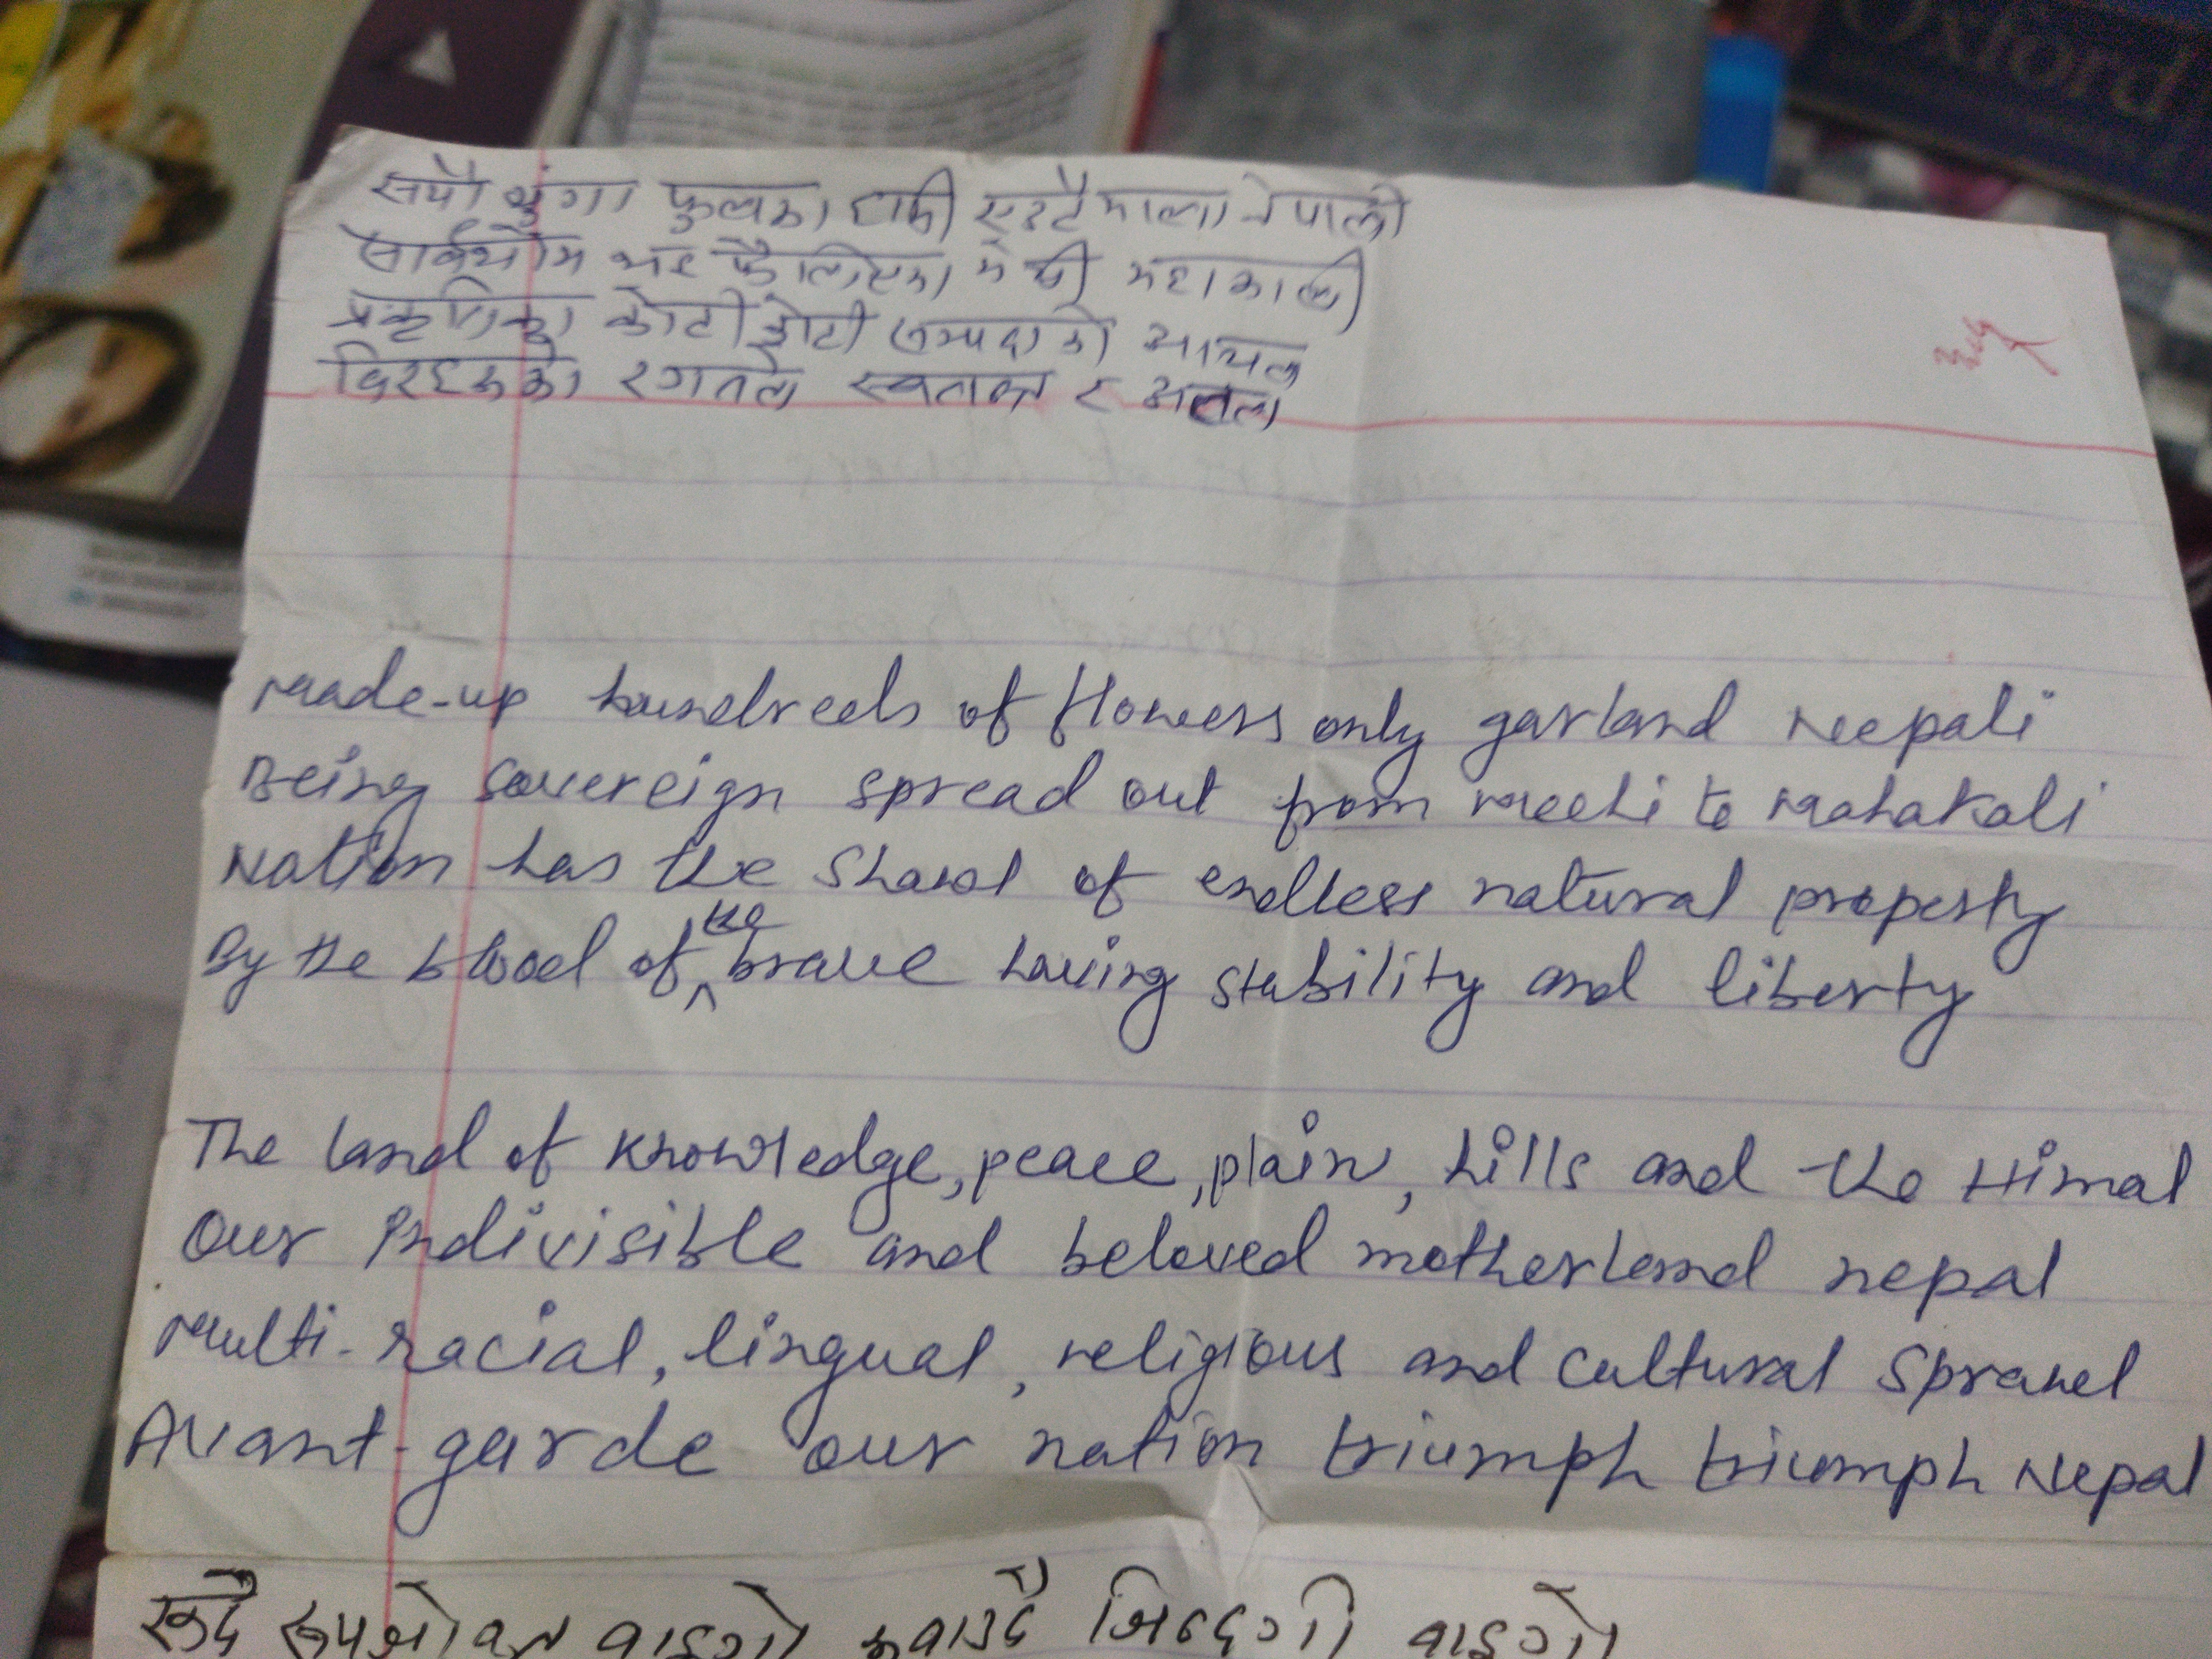 Oxford
सयौं थुंगा फुलका हामी एउटै माला नेपाली
सार्वभौम भइ फैलिएका मेची महाकाली
प्रकृतिका कोटी कोटी सम्पदाको आचल
विरहरुका रगतले स्वतन्त्र र अटल
Made-up houndreds of flowers only garland Neepali
Being sovereign spread out from Meechi to Mahakali
Nation has the Shawl of endless natural property
By the blood of the brave having stability and liberty
The land of knowledge, peace, plain, hills and the Himal
Our Indivisible and beloved motherland nepal
Multi-racial, lingual, religious and cultural Sprawl
Avant-garde our nation triumph triumph Nepal